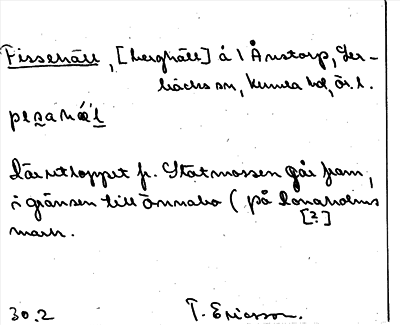 Pissehäll, [berghäll] å 1 Ånstorp, Ler-
bäcks sn, Kumla hd, ör. l.
pɩsahæ̀l
Där utloppet fr. Statmossen går fram,
i gränsen till Önnabo (på Donaholms
[?]
mark.
30.2 T. Ericsson.